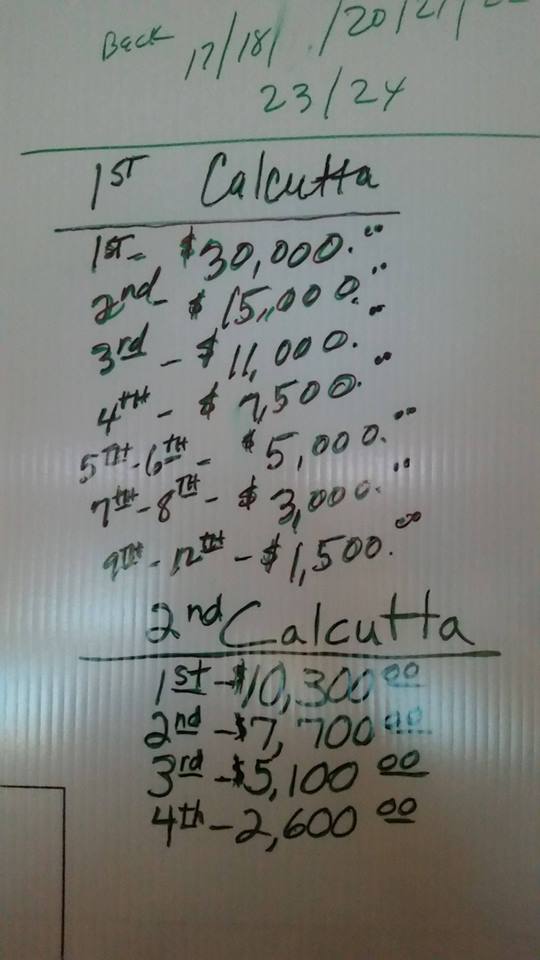 Back 17/18/ /20/21/
23/24
1ST Calcutta
1ST- $30,000.00
2nd- $15,000.00
3rd - $11,000.00
4TH - $7,500.00
5TH-6TH- $5,000.00
7TH-8TH- $3,000.00
9TH-12TH-$1,500.00
2nd Calcutta
1st-$10,300 00
2nd-$7,700 00
3rd-$5,100 00
4th-2,600 00